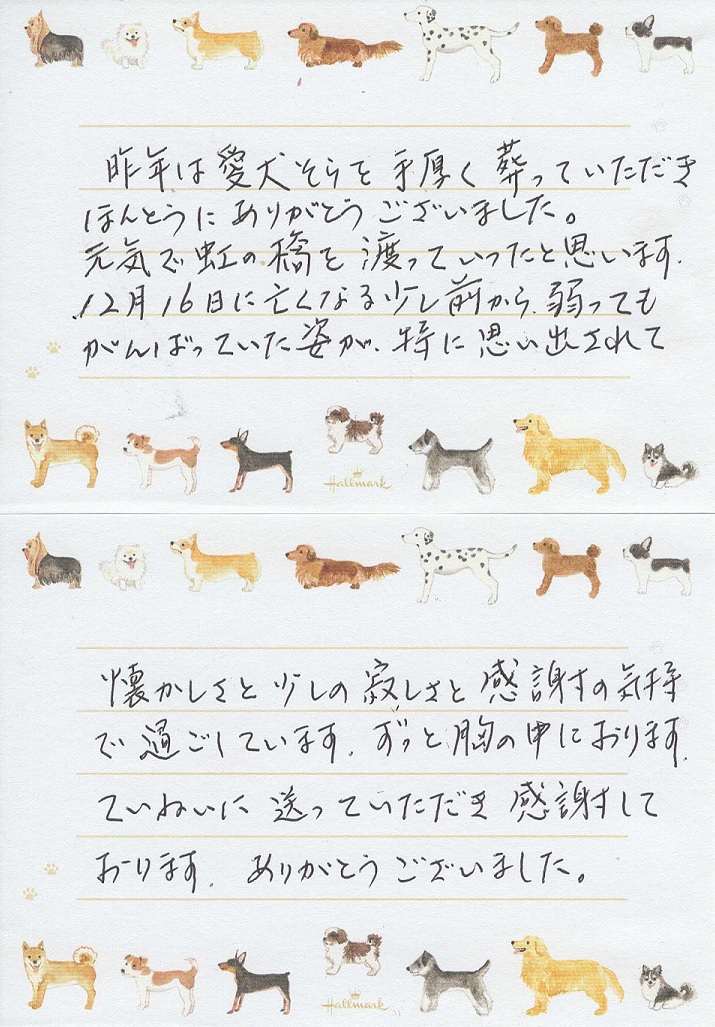 昨年は愛犬そらを手厚く葬っていただき
ほんとうにありがとうございました。
元気で虹の橋を渡っていったと思います.
12月16日に亡くなる少し前から、弱っても
がんばっていた姿が、特に思い出されて
Hallmark
懐かしさと少しの寂しさと感謝の気持
で過ごしています. ずっと胸の中におります.
ていねいに送っていただき感謝して
おります. ありがとうございました。
Hallmark